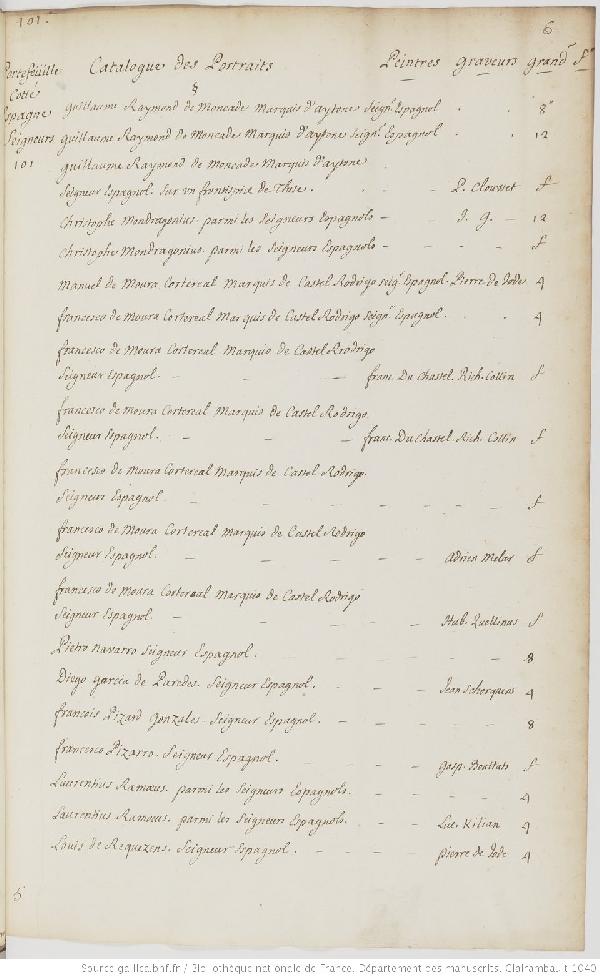 101.
6
Portefeüille Catalogue des Portraits Peintres graveurs grand.r f.o
Cotté §
Espagne guillaume Raymond de Moncade Marquis d'aytone Seig.r Espagnol . . 8º
Seigneurs guillaume Raymond de Moncade Marquis d'aytone Seign.r Espagnol . . 12
101 guillaume Raymond de Moncade Marquis d'aytone
Seigneur Espagnol. Sur un frontispice de These. - P. Clouwet f
Christophe Mondragonius. parmi les Seigneurs Espagnols - - J. G. - 12
Christophe Mondragonius. parmi les Seigneurs Espagnols - - - - f
Manuel de Moura Cortereal Marquis de Castel Rodrigo seig.r Espagnol. Pierre de Jode 4
francesco de Moura Cortereal Marquis de Castel Rodrigo Seign.r Espagnol. . . 4
francesco de Moura Cortereal Marquis de Castel Rrodrigo
Seigneur Espagnol. - - - franc. Du Chastel. Rich. Collin f
francesco de Moura Cortereal Marquis de Castel Rodrigo
Seigneur Espagnol. - - - franc. Du Chastel. Rich. Collin f
francesco de Moura Cortereal Marquis de Castel Rodrigo.
Seigneur Espagnol - - - - - - - f
francesco de Moura Cortereal Marquis de Castel Rodrigo
Seigneur Espagnol. - - - - - Adrien Melar f
francesco de Moura Cortereal Marquis de Castel Rodrigo
Seigneur Espagnol. - - - - - Hub. Quellinus f
Pietro Navarro Seigneur Espagnol. - - - - - 8
Diego Garcia de Paredes. Seigneur Espagnol. - - - Jean 4
francois Pizard Gonzales. Seigneur Espagnol. - - - - 8
francesco Pizarro. Seigneur Espagnol. - - - - Gasp. Bouttats f
Laurentius Ramaus. parmi les Seigneurs Espagnols. - - - 4
Laurentius Ramaus. parmi les Seigneurs Espagnols. - - Luc. Kilian 4
Louis de Requezens. Seigneur Espagnol. - - - - pierre de Jode 4
5
Source gallica.bnf.fr / Bibliothèque nationale de France. Département des manuscrits. Clairambault 1040